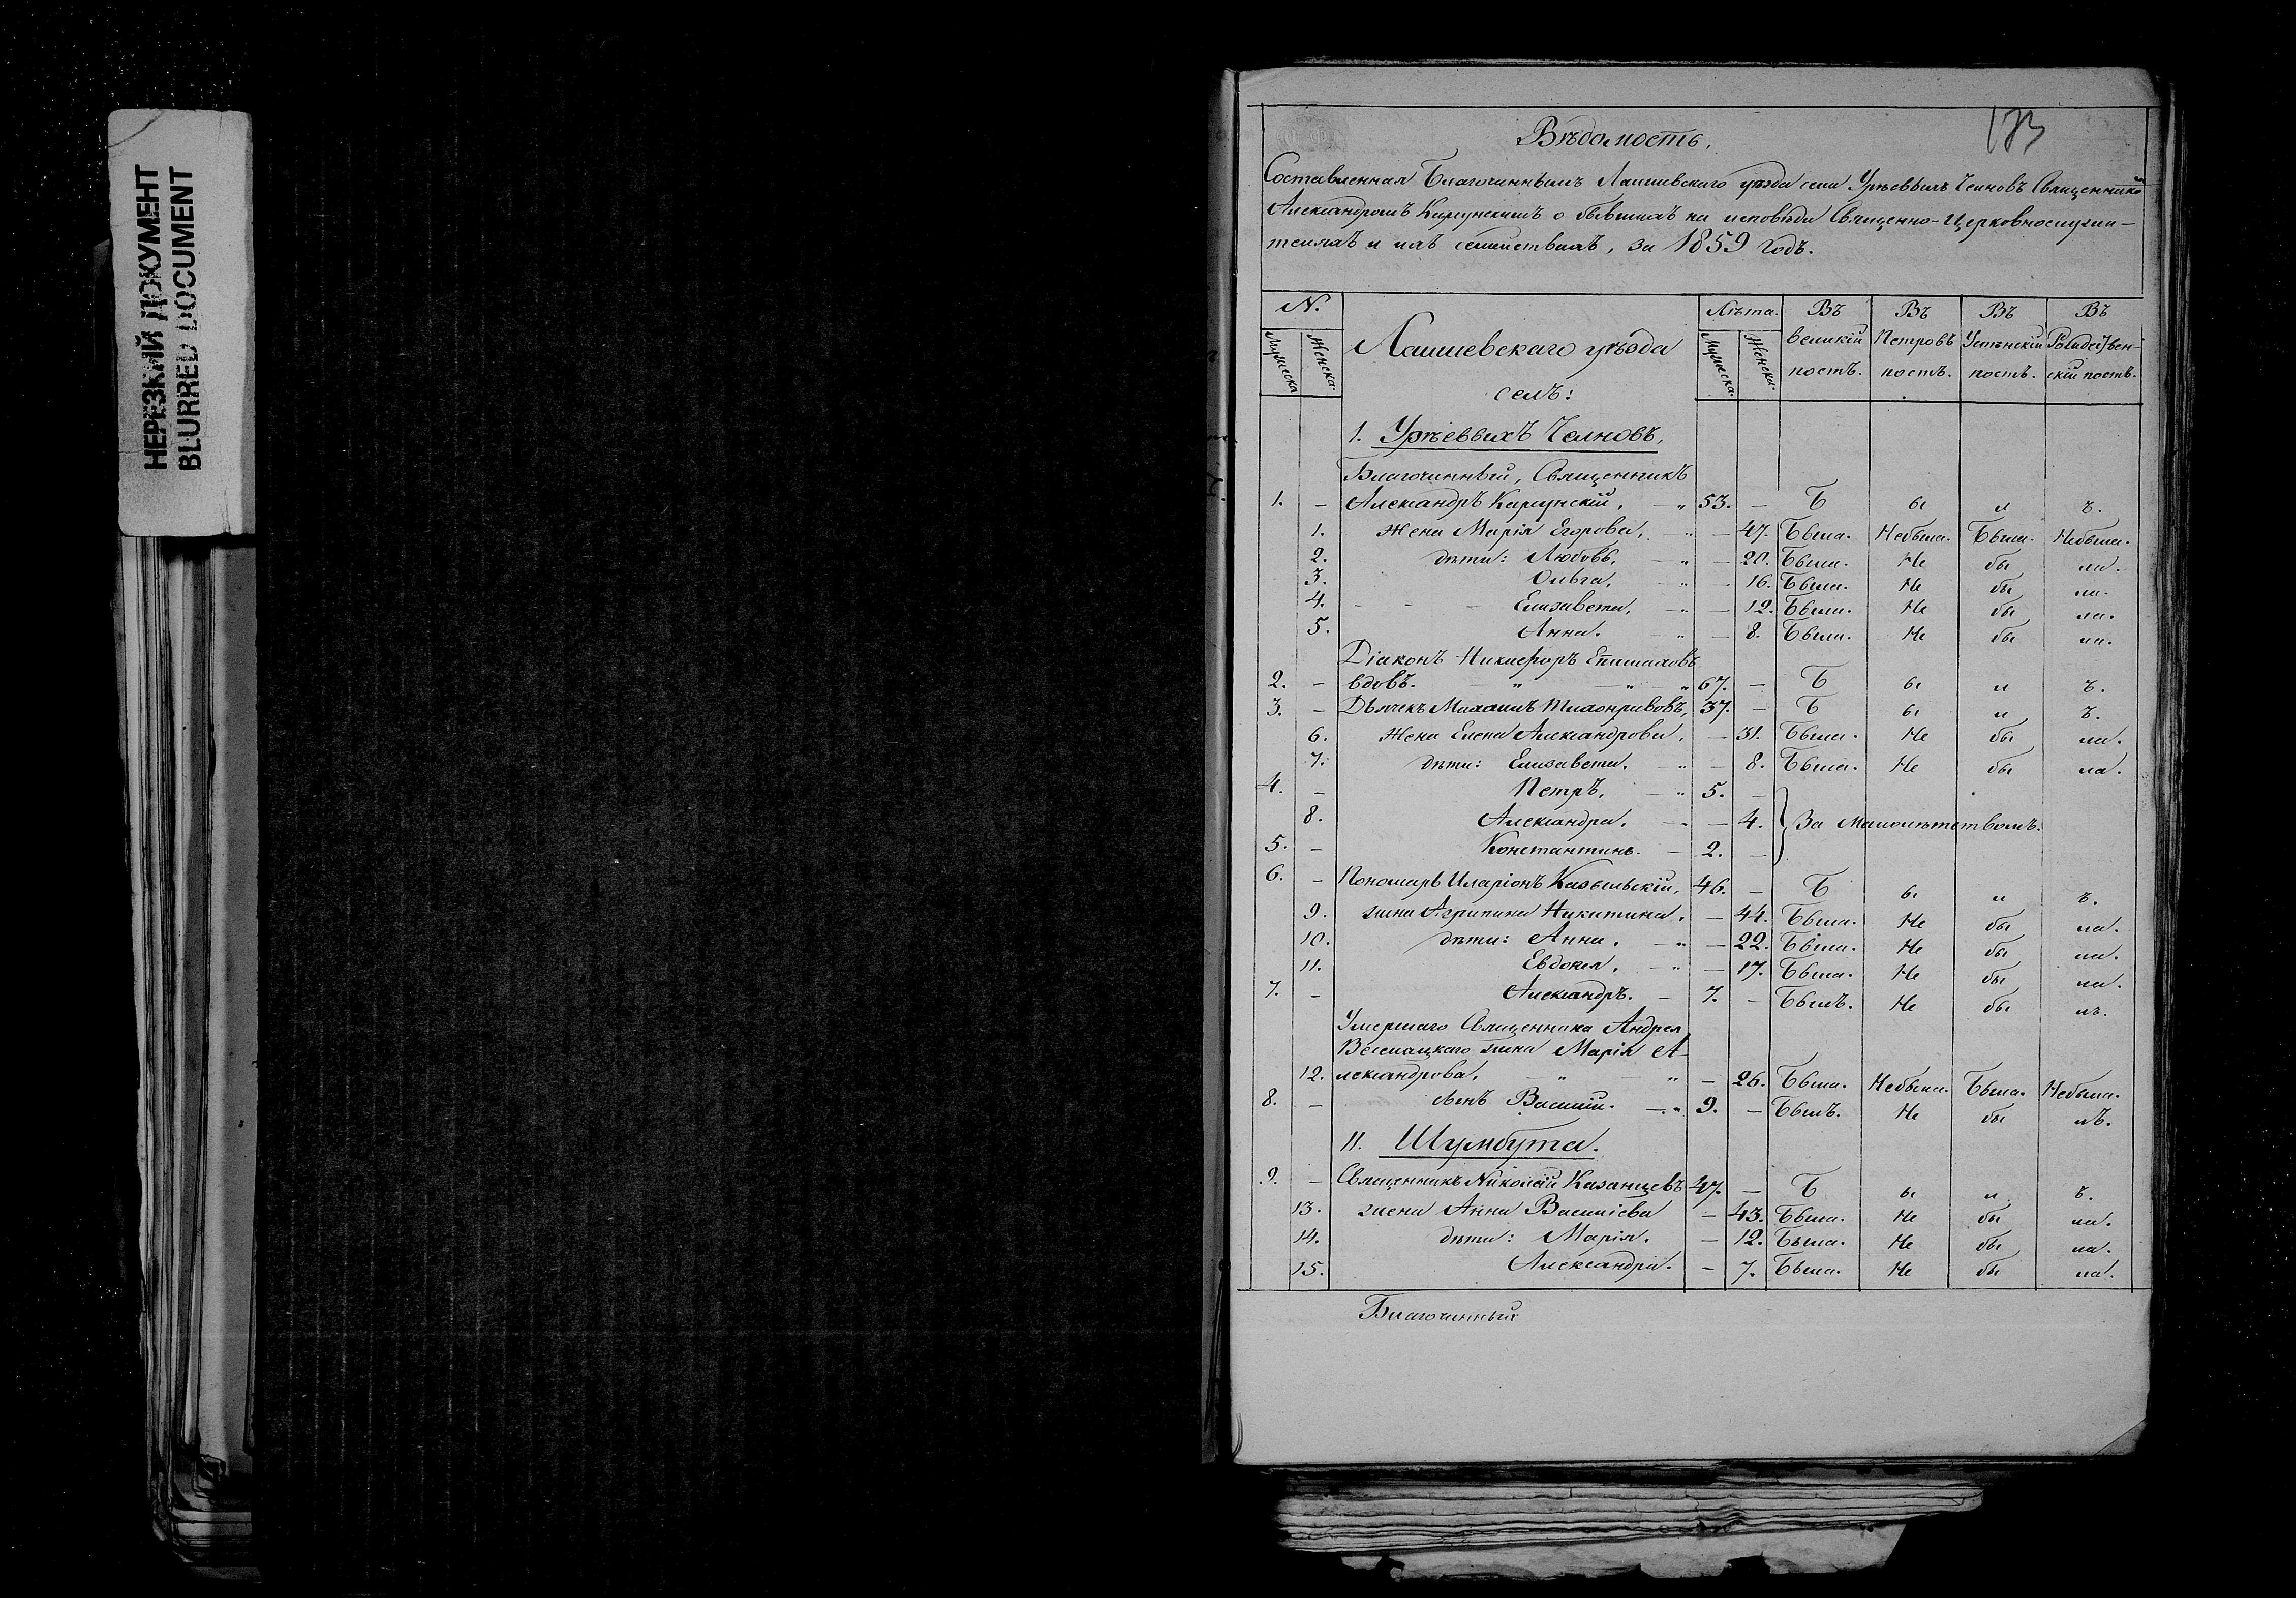 НЕРЕЗКИЙ ДОКУМЕНТ
BLURRED DOCUMENT
Вѣдомость,
Составленная Благочиннымъ Лаишевскаго уѣзда села Урѣевыхъ Челновъ Священникомъ
Александромъ о бывшихъ на исповѣди Священно-Церковнослужи-
теляхъ и ихъ семействахъ, за 1859 годъ.
N. Лѣта. Въ Въ Въ Въ
Мужеска. Женска. Лаишевскаго уѣзда Мужеска. Женска. великій Петровъ Успенскій Рождествен-
постъ. постъ. постъ. скій постъ.
селъ:
1. Урѣевыхъ Челновъ,
Благочинный, Священникъ
1. – Александръ „ 53. – Б ы л ъ.
1. Жена Марія Егорова, – „ – 47. Была. Небыла. Была. Небыла.
2. дѣти: Любовь, – „ – 20. Была. Не бы ла.
3. Ольга, – „ – 16. Была. Не бы ла.
4. – – – Елизавета, – „ – 12. Была. Не бы ла.
5. Анна. – „ – 8. Была. Не бы ла.
Діаконъ Никифоръ
2. – вдовъ. – „ – „ – „ 67. – Б ы л ъ.
3. – Дьячекъ Михаилъ Тихонравовъ, 37. – Б ы л ъ.
6. Жена Елена Александрова, – 31. Была. Не бы ла.
7. дѣти: Елизавета, – „ – 8. Была. Не бы ла.
4. – Петръ, – „ 5. –
8. Александра, – „ – 4. За малолѣтствомъ.
5. – Константинъ. – 2. –
6. – Пономарь Иларіонъ 46. – Б ы л ъ.
9. жена Агрипина Никитина, – 44. Была. Не бы ла.
10. дѣти: Анна, – „ – 22. Была. Не бы ла.
11. Евдокея, – „ – 17. Была. Не бы ла.
7. – Александръ. – 7. – Былъ. Не бы лъ.
Умершаго Священника Андрея
жена Марія А-
12. лександрова, – „ – „ – 26. Была. Небыла. Была. Небыла.
8. – сынъ Василій. – „ 9. – Былъ. Не бы лъ.
11. Шумбута.
9. – Священникъ Николай Казанцевъ 47. – Б ы л ъ.
13. жена Анна Василіева – 43. Была. Не бы ла.
14. дѣти: Марія, – 12. Была. Не бы ла.
15. Александра. – 7. Была. Не бы ла.
Благочинный